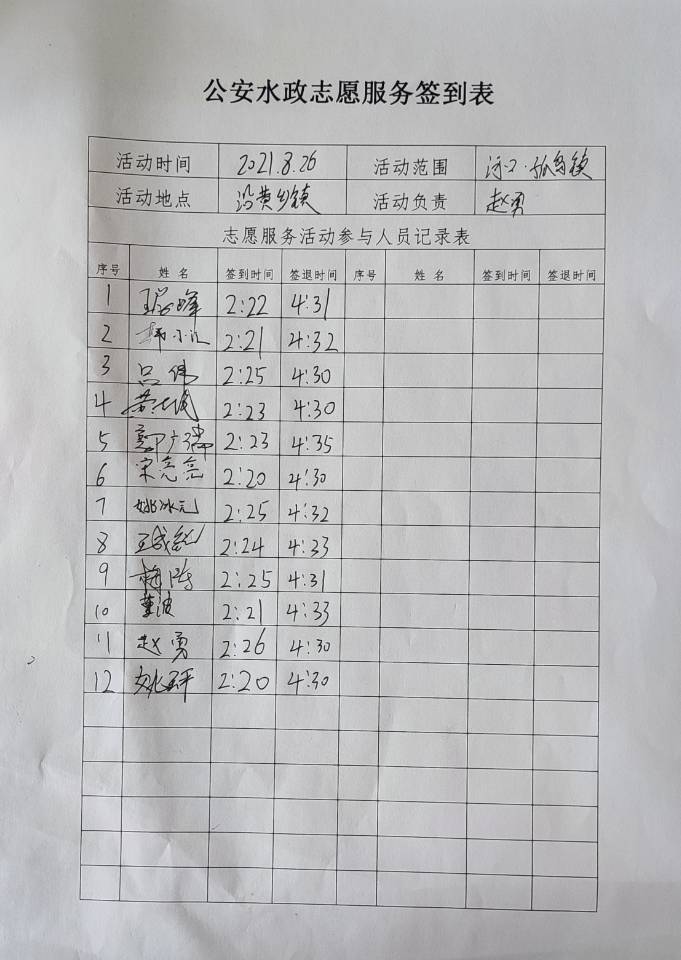 公安水政志愿服务签到表
活动时间 2021.8.26 活动范围 河口·孤岛镇
活动地点 沿黄乡镇 活动负责 赵勇
志愿服务活动参与人员记录表
序号 姓名 签到时间 签退时间 序号 姓名 签到时间 签退时间
1 2:22 4:31
2 2:21 4:32
3 吕伟 2:25 4:30
4 2:23 4:30
5 2:23 4:35
6 宋亮亮 2:20 4:30
7 姚冰元 2:25 4:32
8 2:24 4:33
9 2:25 4:31
10 董波 2:21 4:33
11 赵勇 2:26 4:30
12 2:20 4:30